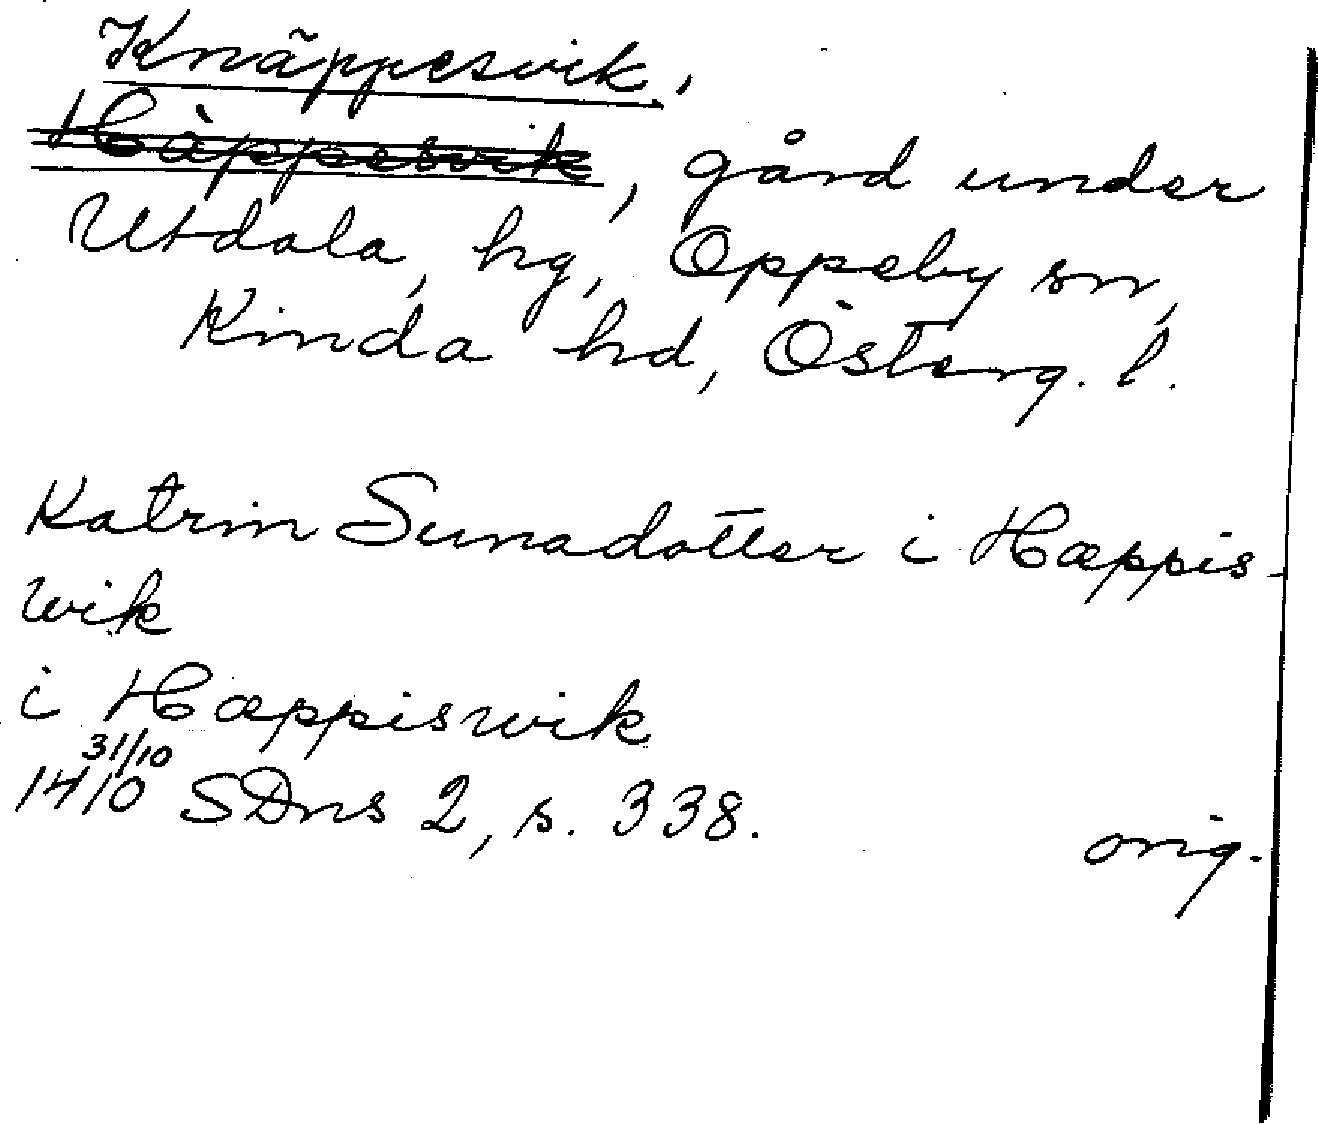 Knäppesvik,
Häppesvik, gård under
Utdala, hg, Oppeby sn,
Kinda hd, Österg. l.
Katrin Sunadotter i Hæppis-
wik
i Hæppiswik
31/10
1410 SDns 2, s. 338.
orig.